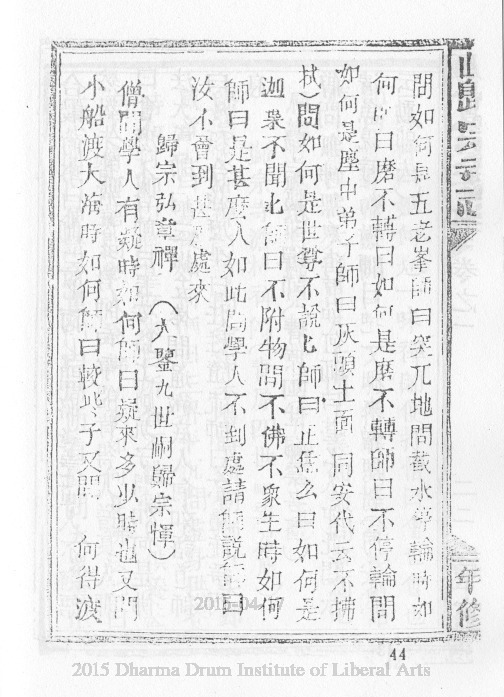 問如何是五老峯師曰突兀地問截水停輪時如
何師曰磨不轉曰如何是磨不轉師曰不停輪問
如何是塵中弟子師曰灰頭土面同安代云不拂
拭）問如何是世尊不說說師曰正恁么曰如何是
迦葉不聞聞師曰不附物問不佛不衆生時如何
師曰是甚麼人如此問學人不到處請師說師曰
汝不會到甚麼處來
歸宗弘章禪（大鑒九世嗣歸宗惲）
僧問學人有疑時如何師曰疑來多少時也又問
小船渡大海時如何師曰較些子又問 何得渡
年修
2015-04-17
44
2015 Dharma Drum Institute of Liberal Arts